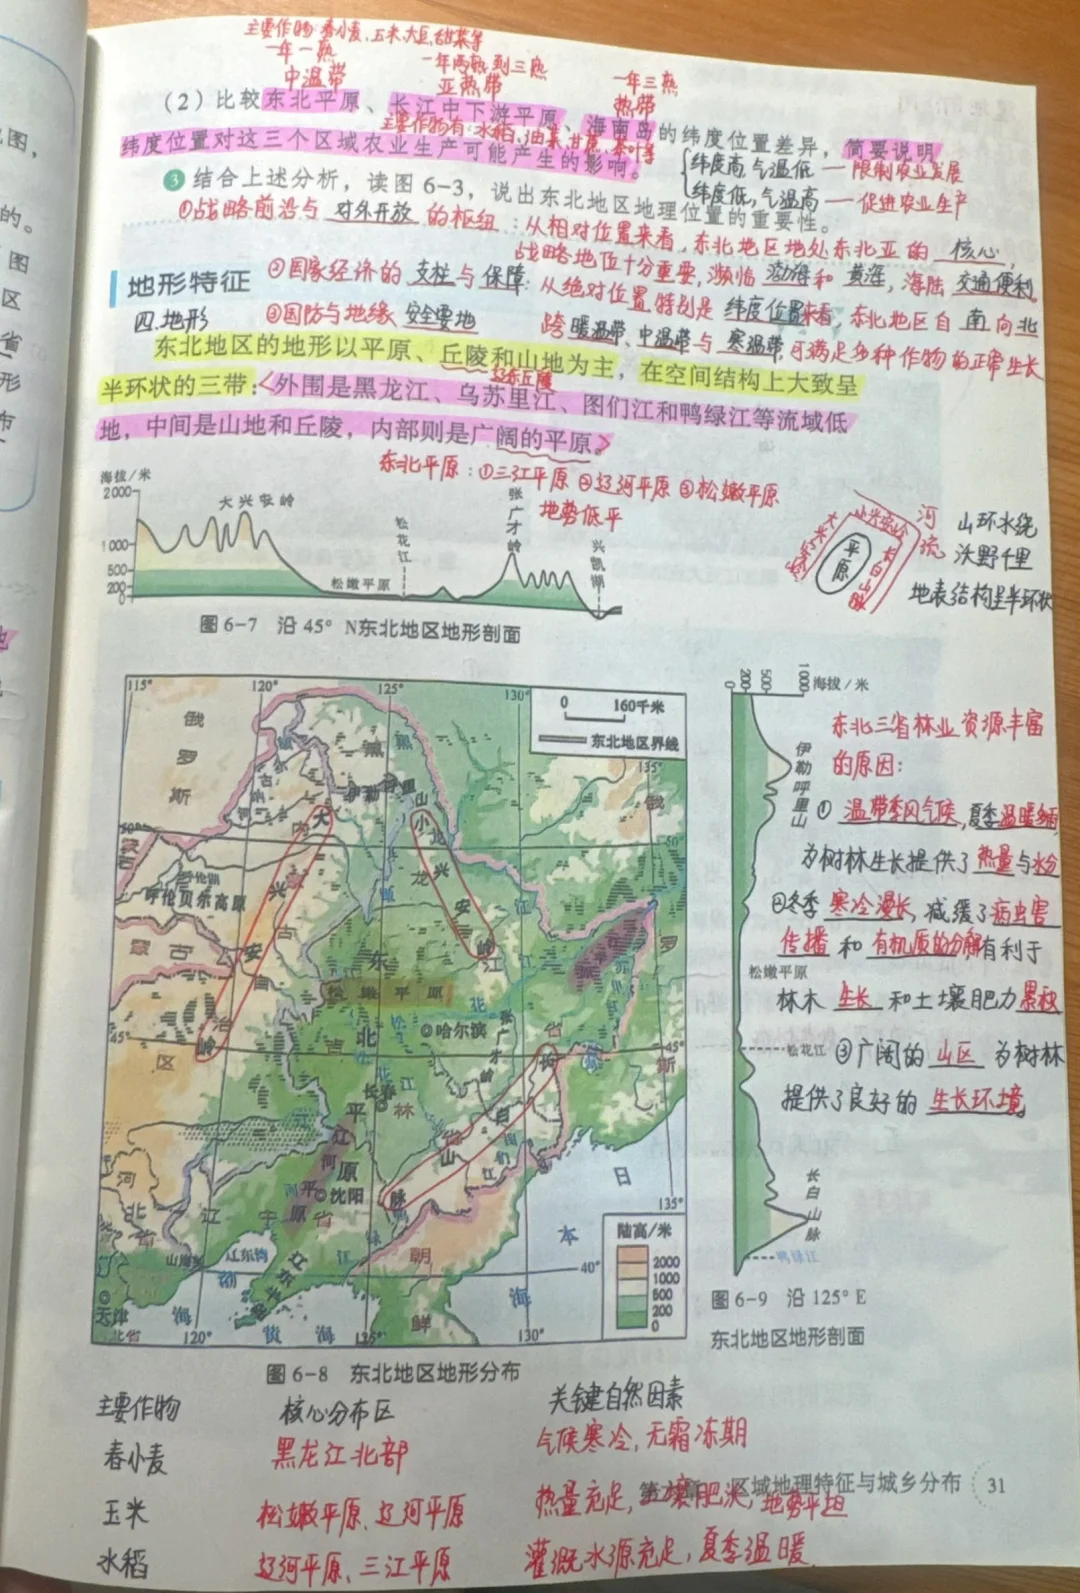 主要作物:春小麦、玉米、大豆、甜菜等
一年一熟
一年两熟到三熟
一年三熟
中温带
亚热带
热带
（2）比较东北平原、长江中下游平原、海南岛的纬度位置差异，简要说明
主要作物有:水稻、油菜、甘蔗、茶叶等
纬度位置对这三个区域农业生产可能产生的影响。
纬度高,气温低—限制农业发展
纬度低,气温高—促进农业生产
3 结合上述分析，读图 6-3，说出东北地区地理位置的重要性。
①战略前沿与 对外开放 的枢纽:从相对位置来看,东北地区地处东北亚的 核心,
战略地位十分重要,濒临 渤海 和 黄海,海陆 交通便利。
地形特征
②国家经济的 支柱 与 保障:从绝对位置,特别是 纬度位置来看,东北地区自 南 向 北
四.地形
③国防与地缘 安全要地
跨 暖温带、中温带与 寒温带,可满足多种作物的正常生长
东北地区的地形以平原、丘陵和山地为主，在空间结构上大致呈
辽东丘陵
半环状的三带：外围是黑龙江、乌苏里江、图们江和鸭绿江等流域低
地，中间是山地和丘陵，内部则是广阔的平原。
东北平原:①三江平原②辽河平原③松嫩平原
地势低平
海拔/米
2000
1000
500
200
0
大兴安岭
松嫩平原
松花江
张广才岭
兴凯湖
图 6-7 沿 45° N东北地区地形剖面
大兴安岭
小兴安岭
长白山脉
平原
河流
山环水绕
沃野千里
地表结构呈半环状
115°
120°
125°
130°
0 160千米
东北地区界线
135°
俄
罗
斯
伊勒呼里山
大兴安岭
小兴安岭
呼伦贝尔高原
蒙古
50°
松嫩平原
哈尔滨
张广才岭
45°
长春
吉林省
东北平原
长白山脉
辽河平原
沈阳
辽宁省
河北省
辽东湾
辽东半岛
山海关
天津
渤海
黄海
朝鲜
日本海
135°
40°
120°
125°
130°
陆高/米
2000
1000
500
200
0
图 6-8 东北地区地形分布
0
200
500
1000
海拔/米
伊勒呼里山
松嫩平原
松花江
长白山脉
鸭绿江
图 6-9 沿 125° E
东北地区地形剖面
东北三省林业资源丰富
的原因:
① 温带季风气候,夏季温暖
为树林生长提供了 热量与水分
②冬季 寒冷漫长,减缓了病虫害
传播 和 有机质的分解有利于
林木 生长 和土壤肥力累积
③广阔的 山区 为树林
提供了良好的 生长环境
主要作物 核心分布区 关键自然因素
春小麦 黑龙江北部 气候寒冷,无霜冻期
区域地理特征与城乡分布 31
玉米 松嫩平原、辽河平原 热量充足,土壤肥沃,地势平坦
水稻 辽河平原、三江平原 灌溉水源充足,夏季温暖.